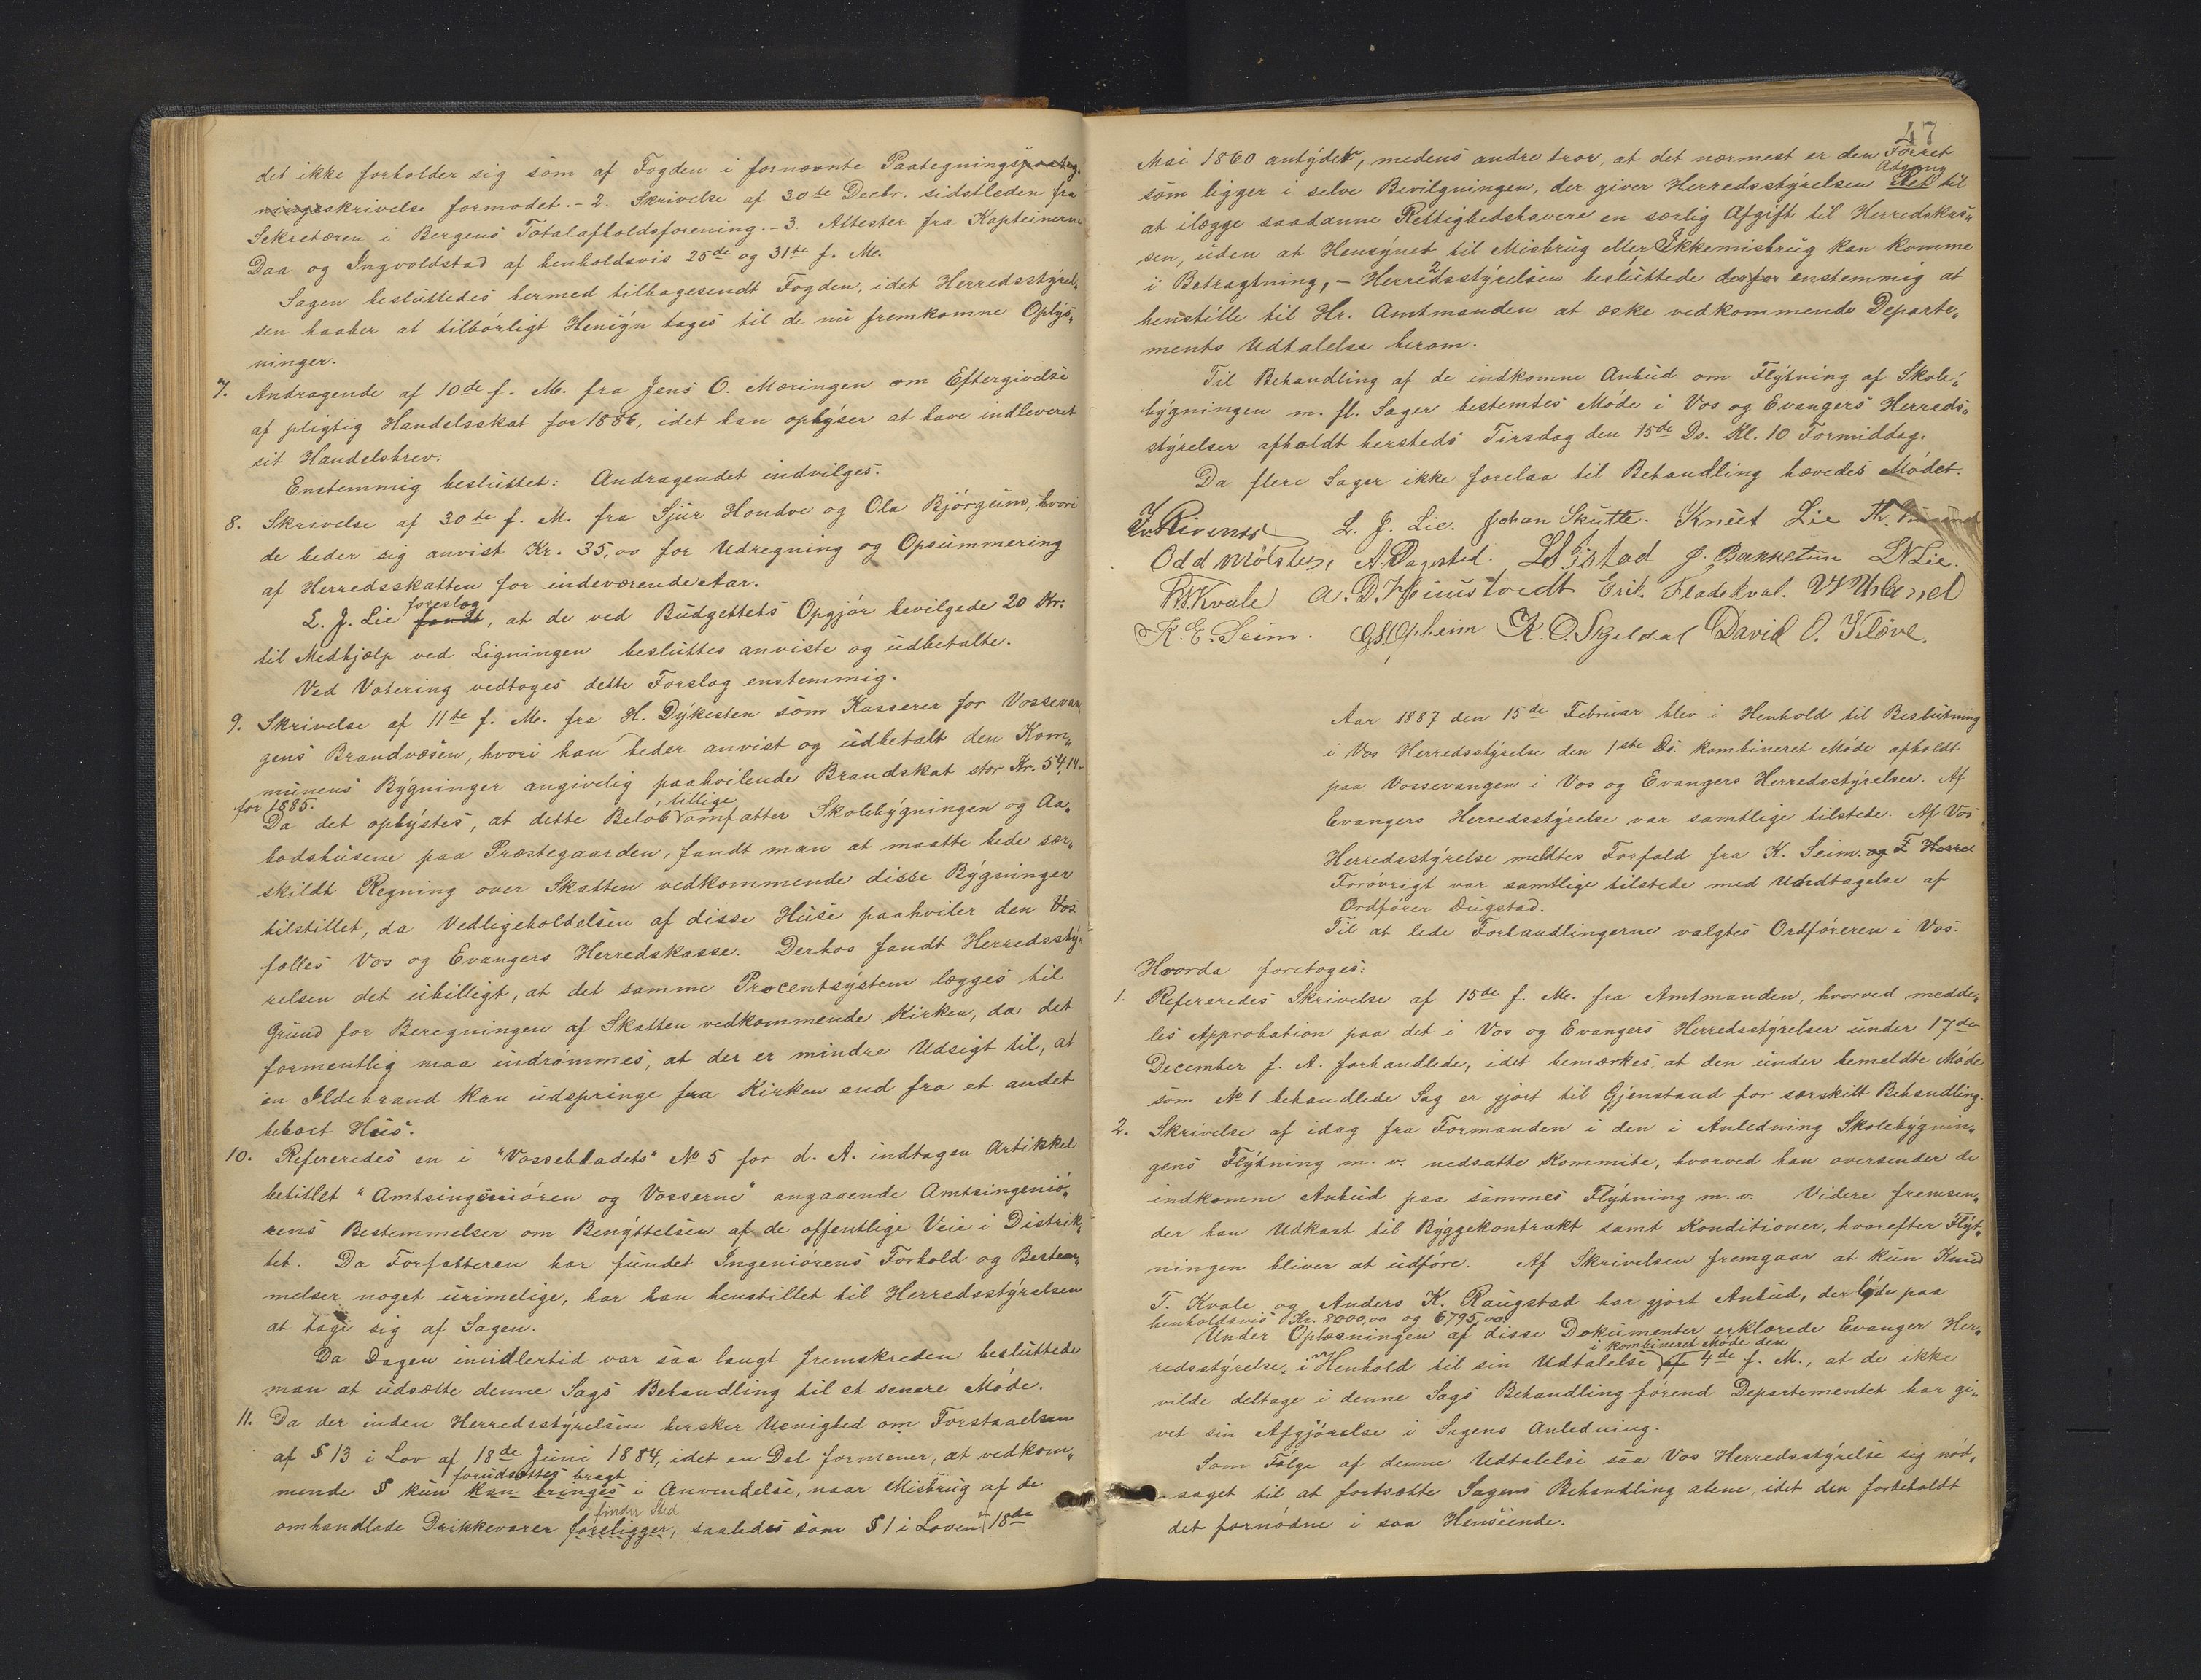 det ikke forholder sig som af Fogden i fornævnte Paategningspaateg-
ningsskrivelse formodet. - 2. Skrivelse af 30te Decbr. sidstleden fra
Sekretæren i Bergens Totalafholdsforening. - 3. Attester fra Kapteinerne
Daa og Ingvoldstad af henholdsvis 25de og 31te f. M.
Sagen besluttedes hermed tilbagesendt Fogden, idet Herredsstyrel„
sen haaber at tilbørligt Hensyn tages til de nu fremkomne Oplys„
ninger.
7. Andragende af 10de f. M. fra Jens O. Mæringen om Eftergivelse
af pligtig Handelsskat for 1886, idet han oplyser at have indleveret
sit Handelsbrev.
Enstemmig besluttet: Andragendet indvilges.
8. Skrivelse af 30te f. M. fra Sjur Hondve og Ola Bjørgum, hvori
de beder sig anvist Kr. 35,00 for Udregning og Opsummering
af Herredsskatten for indeværende Aar.
L. J. Lie foreslog fandt, at de ved Budgettets Opgjør bevilgede 20 Kr.
til Medhjælp ved Ligningen besluttes anviste og udbetalte.
Ved Votering vedtoges dette Forslag enstemmig.
9. Skrivelse af 11te f. M. fra H. Dykesten som Kasserer for Vossevan„
gens Brandvæsen, hvori han beder anvist og udbetalt den Kom„
munens Bygninger angivelig paahvilende Brandskat stor Kr. 54,14
for 1885.
Da det oplystes, at dette Beløb tillige omfatter Skolebygningen og Aa„
bodshusene paa Præstegaarden, fandt man at maatte bede sær„
skildt Regning over Skatten vedkommende disse Bygninger
tilstillet, da Vedligeholdelsen af disse Huse paahviler den Vos
fælles Vos og Evangers Herredskasse. Derhos fandt Herredssty„
relsen det ubilligt, at det samme Procentsystem lægges til
Grund for Beregningen af Skatten vedkommende Kirken, da det
formentlig maa indrømmes, at der er mindre Udsigt til, at
en Ildebrand kan udspringe fra Kirken end fra et andet
beboet Hus.
10. Refereredes en i "Vossebladets" No 5 for d. A. indtagen Artikkel
betitlet "Amtsingeniøren og Vosserne" angaaende Amtsingeniø„
rens Bestemmelser om Benyttelsen af de offentlige Veie i Distrik„
tet. Da Forfatteren har fundet Ingeniørens Forhold og Bestem„
melser noget urimelige, har han henstillet til Herredsstyrelsen
at tage sig af Sagen.
Da Dagen imidlertid var saa langt fremskreden besluttede
man at udsætte denne Sags Behandling til et senere Møde.
11. Da der inden Herredsstyrelsen hersker Uenighed om Forstaaelsen
af § 13 i Lov af 18de Juni 1884, idet en Del formener, at vedkom„
forudsættes bragt
mende § kun kan bringes i Anvendelse, naar Misbrug af de
finder Sted
omhandlede Drikkevarer foreligger, saaledes som § 1 i Loven 18de
47
Mai 1860 antyder, medens andre tror, at det nærmest er den Forret
Adgang
som ligger i selve Bevilgningen, der giver Herredsstyrelsen Ret til
at ilægge saadanne Rettighedshavere en særlig Afgift til Herredskas„
sen, uden at Hensynet til Misbrug eller Ikkemisbrug kan komme
i Betragtning, - Herredsstyrelsen besluttede derfor enstemmig at
henstille til Hr. Amtmanden at æske vedkommende Departe„
ments Udtalelse herom.
Til Behandling af de indkomne Anbud om Flytning af Skole„
bygningen m. fl. Sager bestemtes Møde i Vos og Evangers Herreds„
styrelser afholdt hersteds Tirsdag den 15de Ds. Kl. 10 Formiddag.
Da flere Sager ikke forelaa til Behandling hævedes Mødet.
L. J. Lie. Johan Skutle. Knut Lie Th.
Odd Mølster, A. Dagestad. J. Bakketun L N Lie.
Kvale A. D. Erik Fladekval.
K. E. Seim. Opheim K. O. Skjeldal David O. Kløve.
Aar 1887 den 15de Februar blev i Henhold til Beslutning
i Vos Herredsstyrelse den 1ste Ds. kombineret Møde afholdt
paa Vossevangen i Vos og Evangers Herredsstyrelser. Af
Evangers Herredsstyrelse var samtlige tilstede. Af Vos
Herredsstyrelse meldtes Forfald fra K. Seim. og
Forøvrigt var samtlige tilstede med Undtagelse af
Ordfører Dugstad.
Til at lede Forhandlingerne valgtes Ordføreren i Vos.
Hvorda foretoges:
1. Refereredes Skrivelse af 15de f. M. fra Amtmanden, hvorved medde„
les Approbation paa det i Vos og Evangers Herredsstyrelser under 17de
December f. A. forhandlede, idet bemærkes, at den under bemeldte Møde
som No 1 behandlede Sag er gjort til Gjenstand for særskilt Behandling.
2. Skrivelse af idag fra Formanden i den i Anledning Skolebygnin„
gens Flytning m. v. nedsatte Kommite, hvorved han oversender de
indkomne Anbud paa sammes Flytning m. v. Videre fremsen„
der han Udkast til Byggekontrakt samt Konditioner, hvorefter Flyt„
ningen bliver at udføre. Af Skrivelsen fremgaar at kun Knud
T. Kvale og Anders K. Raugstad har gjort Anbud, der lyde paa
henholdsvis Kr. 8000,00 og 6795,00.
Under Oplæsningen af disse Dokumenter erklærede Evanger Her„
i kombineret Møde den
redsstyrelse, i Henhold til sin Udtalelse af 4de f. M., at de ikke
vilde deltage i denne Sags Behandling førend Departementet har gi„
vet sin Afgjørelse i Sagens Anledning.
Som Følge af denne Udtalelse saa Vos Herredsstyrelse sig nød„
saget til at fortsætte Sagens Behandling alene, idet den forbeholdt
det fornødne i saa Henseende.